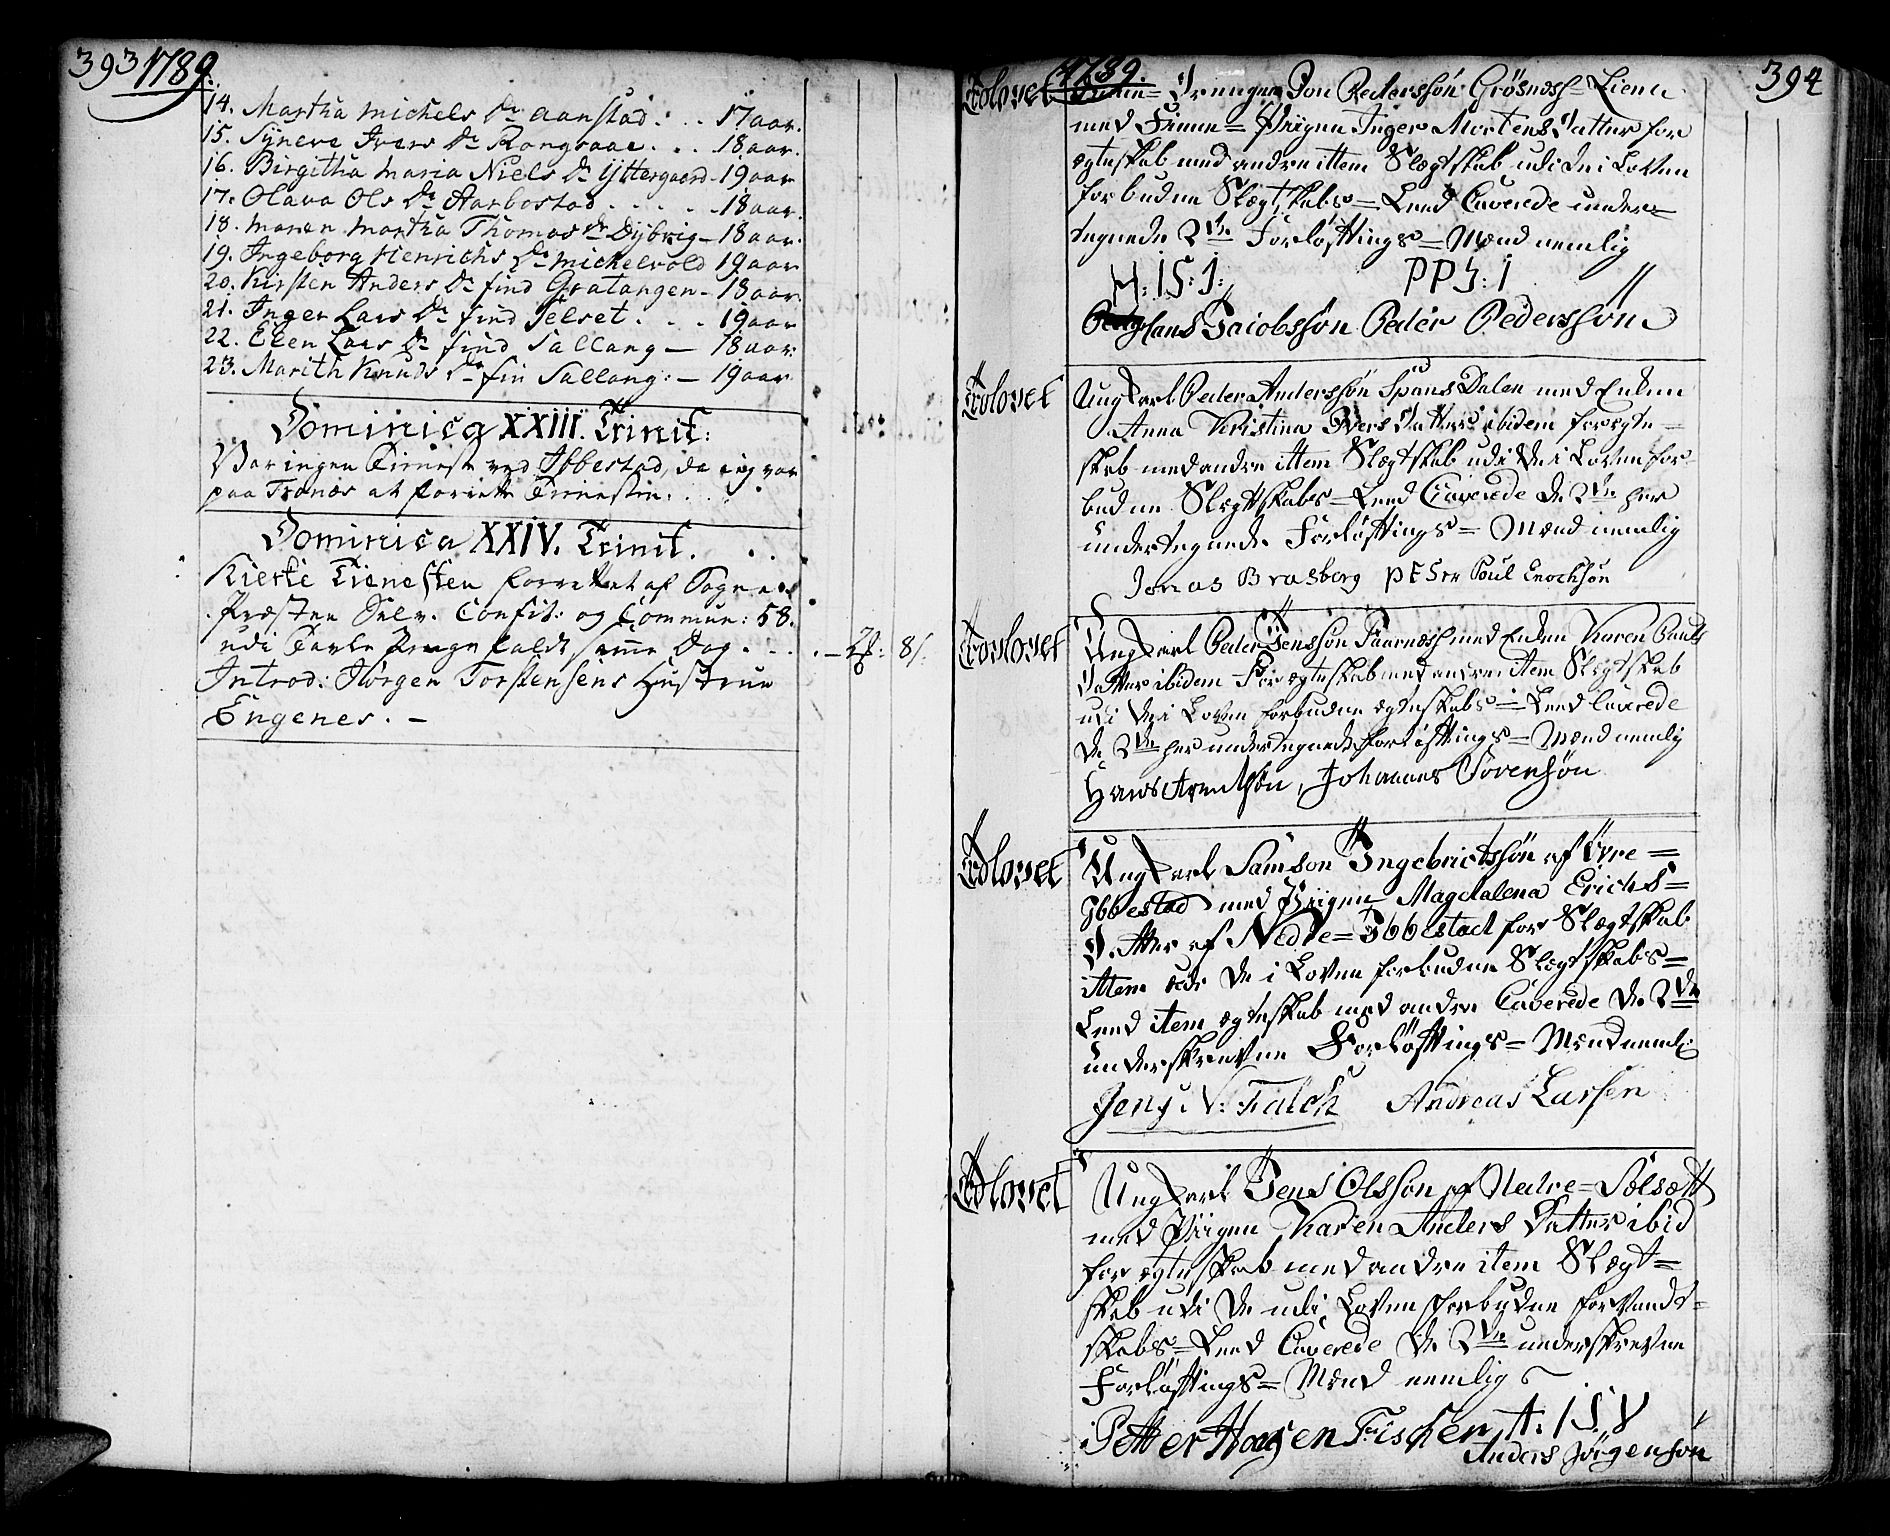 393 1789.
14. Martha Michels Dr Aanstad: .. 17 aar.
15. Syneve Ivers Dr Rongraae. .. 18 aar.
16. Birgitha Maria Niels Dr Yttergaard - 19 aar
17. Olava Ols Dr Aarbostad ..... 18 aar.
18. Maren Martha Thomas Dr Dybvig - 18 aar.
19. Ingeborg Henrichs Dr Mickelvold 19 aar
20. Kirsten Anders Dr find Gratangen - 18 aar.
21. Inger Lars Dr find Selset. .. 19 aar
22. Elen Lars Dr find Sallang - 18 aar.
23. Marith Knuds Dr fin Sallang: - 19 aar.
Dominica XXIII. Trinit:
Var ingen Tieneste ved Ibbestad, da ieg var
paa Tranæs at forrette Tienesten.
Dominica XXIV. Trinit.
Kierke Tienesten forrettet af Sogne
Præsten Selv. Confit: og Commun: 58.
udi Tavle Penge faldt samme Dag. - 2 8 s.
Introd: Jørgen Torstensens Hustrue
Engenes. -
1789. 394
Trolovet Finne-Drengen Jon Pederssøn Grøsnæss-Lien
med Finne-Piigen Inger Mortens Datter for
ægteskab med andre ittem Slægtskab udi de i Loven
forbudne Slægtskabs-Leed Caverede under-
tegnede 2de Forløftings-Mænd nemlig
H:IS:I: PPS:I
Hans Jacobssøn Peder Pederssøn
Trolovet Ung Karl Peder Anderssøn Spans Dalen med Enken
Anna Kiristina Ivers Datter ibidem for ægte-
skab med andre ittem Slægtskab udi de i Loven for-
budne Slegtskabs-Leed Caverede de 2de her
undertegnede Forløftings-Mænd nemlig
Jonas Brasberg PESen Poul Enochsøn
Trolovet Ung Karl Peder Jenssøn Faarnæss med Enken Karen Pauls
Datter ibidem For ægteskab med andre item Slegtskab
udi de i Loven forbudne ægteskabs-Leed Caverede
de 2de her undertegnede forløftings-Mænd nemlig
Hans Arentsøn, Johannes Sørensøn
Trolovet Ung Karl Samson Ingebrictssøn af Øvre-
Ibbestad med Piigen Magdalena Erichs-
Datter af Nedre-Ibbestad for Slægtskab
ittem udi de i Loven forbudne Slegtskabs-
Leed item ægteskab med andre Caverede de 2de
underskrevne Forløftings-Mænd nemlig
Jens N: Falch Andreas Larsen
Trolovet Ung Karl Jens Olssøn af Nedre-Sølsætt
med Piigen Karen Anders Datter ibid
for ægteskab med andre item Slægt-
skab udi de udi Loven forbudne forvandt-
skabs-Leed Caverede de 2de underskrevne
Forløftings-Mænd nemlig
Petter Hagen Fischer A:ISV
Anders Jørgensøn